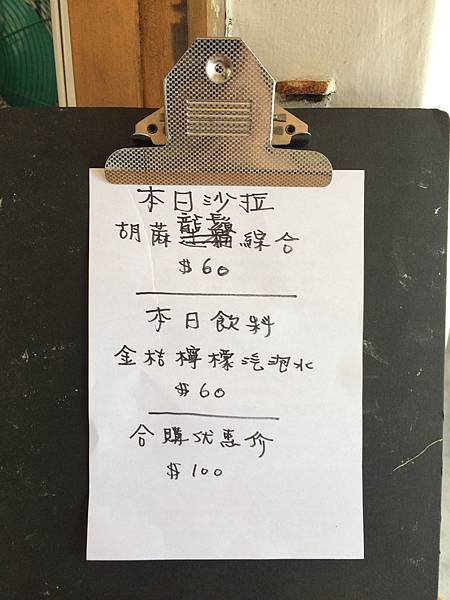 本日沙拉
胡蔴龍鬚綜合
$60
本日飲料
金桔檸檬汽泡水
$60
合購优惠价
$100